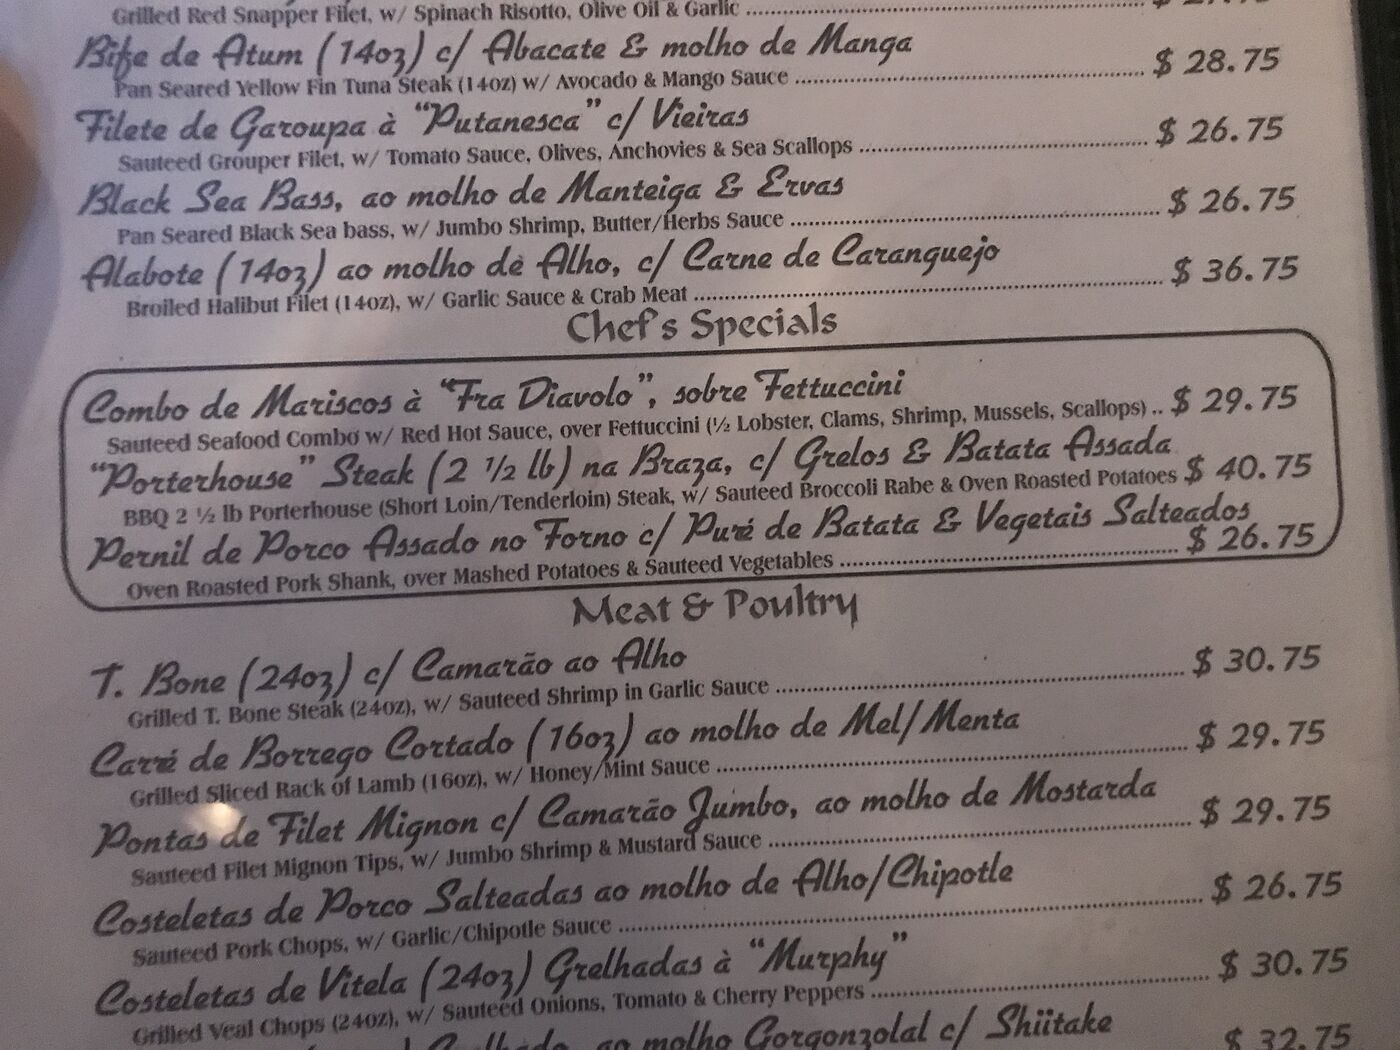 Grilled Red Snapper Filet, w/ Spinach Risotto, Olive Oil & Garlic
Bife de Atum (14oz) c/ Abacate & molho de Manga
Pan Seared Yellow Fin Tuna Steak (14oz) w/ Avocado & Mango Sauce ........ $ 28.75
Filete de Garoupa à "Putanesca" c/ Vieiras
Sauteed Grouper Filet, w/ Tomato Sauce, Olives, Anchovies & Sea Scallops ........ $ 26.75
Black Sea Bass, ao molho de Manteiga & Ervas
Pan Seared Black Sea bass, w/ Jumbo Shrimp, Butter/Herbs Sauce ........ $ 26.75
Alabote (14oz) ao molho de Alho, c/ Carne de Caranguejo
Broiled Halibut Filet (14oz), w/ Garlic Sauce & Crab Meat ........ $ 36.75
Chef's Specials
Combo de Mariscos à "Fra Diavolo", sobre Fettuccini
Sauteed Seafood Combo w/ Red Hot Sauce, over Fettuccini (½ Lobster, Clams, Shrimp, Mussels, Scallops) .. $ 29.75
"Porterhouse" Steak (2 ½ lb) na Braza, c/ Grelos & Batata Assada
BBQ 2 ½ lb Porterhouse (Short Loin/Tenderloin) Steak, w/ Sauteed Broccoli Rabe & Oven Roasted Potatoes $ 40.75
Pernil de Porco Assado no Forno c/ Puré de Batata & Vegetais Salteados
Oven Roasted Pork Shank, over Mashed Potatoes & Sauteed Vegetables ........ $ 26.75
Meat & Poultry
T. Bone (24oz) c/ Camarão ao Alho
Grilled T. Bone Steak (24oz), w/ Sauteed Shrimp in Garlic Sauce ........ $ 30.75
Carré de Borrego Cortado (16oz) ao molho de Mel/Menta
Grilled Sliced Rack of Lamb (16oz), w/ Honey/Mint Sauce ........ $ 29.75
Pontas de Filet Mignon c/ Camarão Jumbo, ao molho de Mostarda
Sauteed Filet Mignon Tips, w/ Jumbo Shrimp & Mustard Sauce ........ $ 29.75
Costeletas de Porco Salteadas ao molho de Alho/Chipotle
Sauteed Pork Chops, w/ Garlic/Chipotle Sauce ........ $ 26.75
Costeletas de Vitela (24oz) Grelhadas à "Murphy"
Grilled Veal Chops (24oz), w/ Sauteed Onions, Tomato & Cherry Peppers ........ $ 30.75
ao molho Gorgonzolal c/ Shiitake
$ 32.75